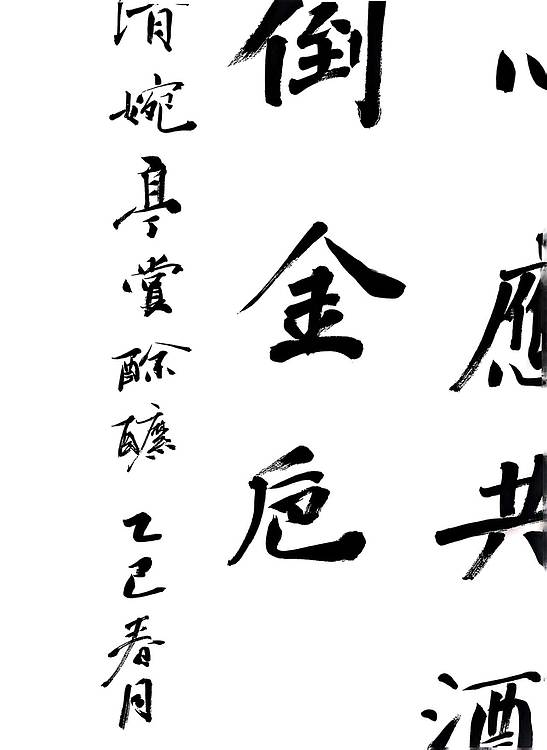 應共酒
倒金卮
清婉亭賞酴醿 乙巳春月